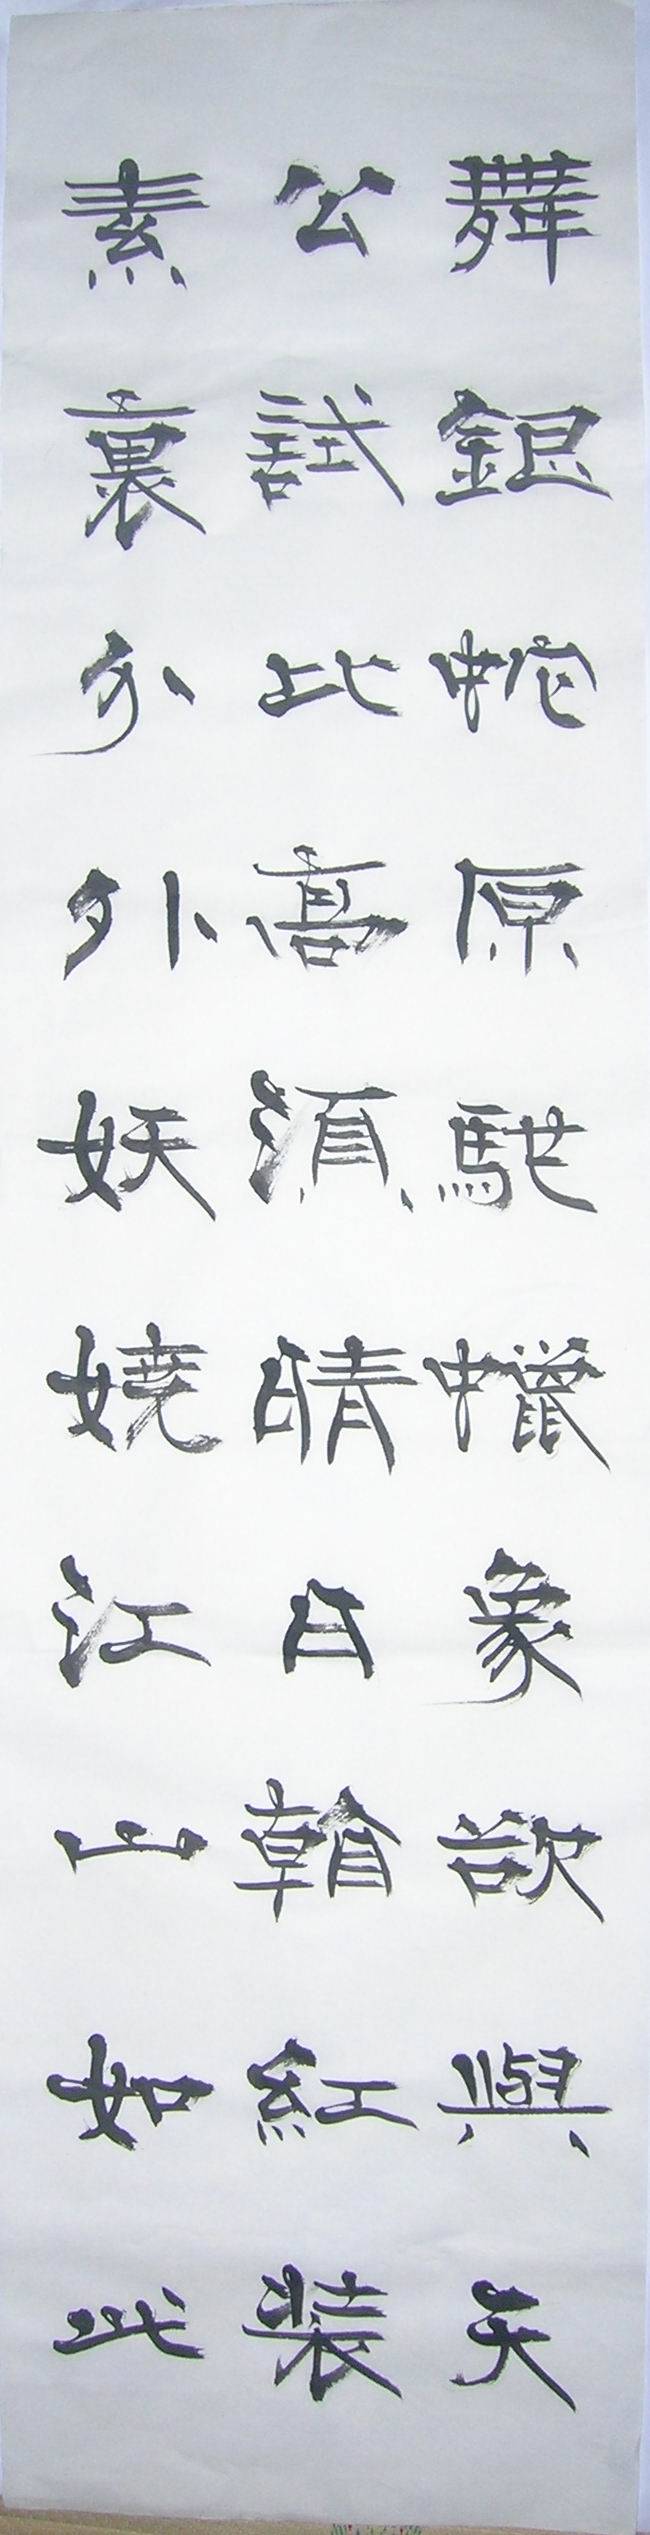 舞銀蛇原馳蠟象欲與天
公試比高須晴日看紅装
素裹分外妖嬈江山如此